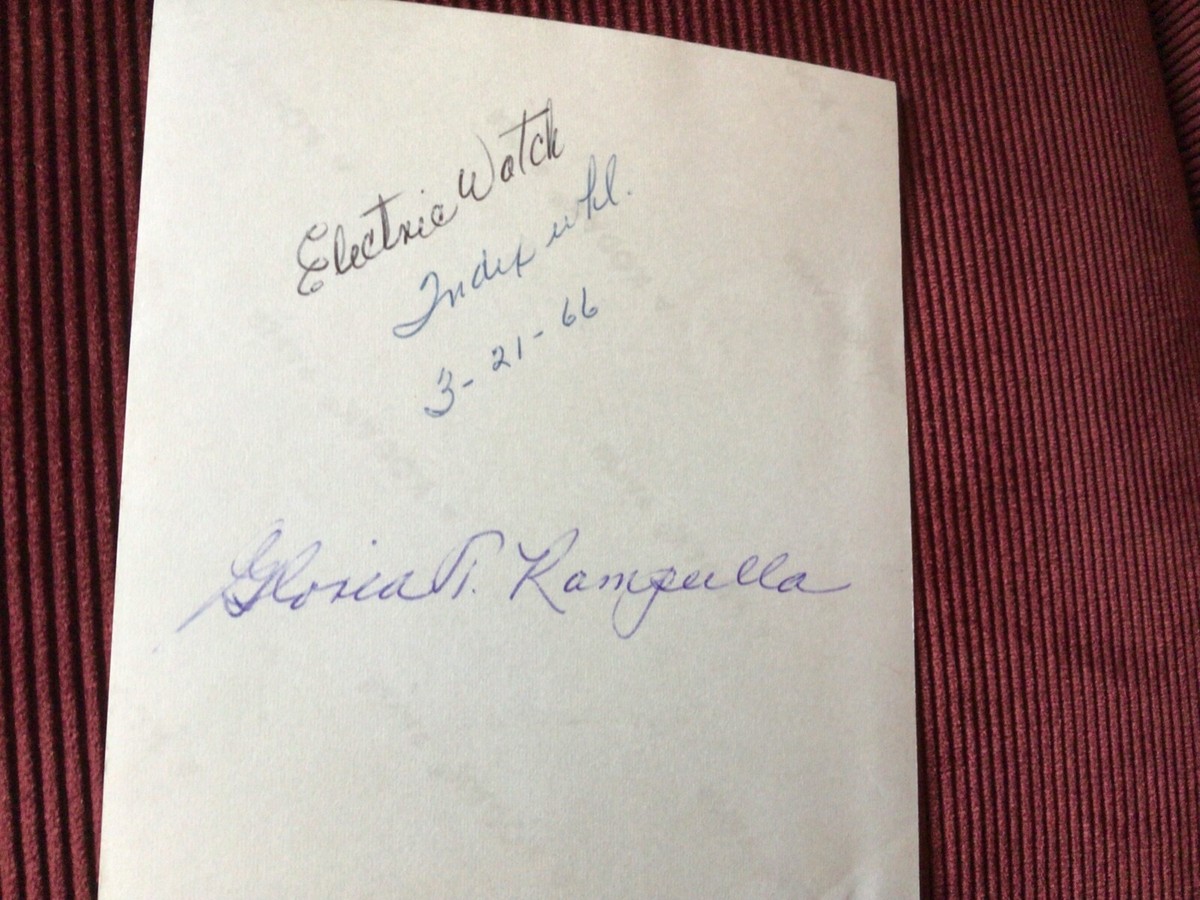 Electric Watch
Index whl.
3-21-66
Gloria T. Rampulla